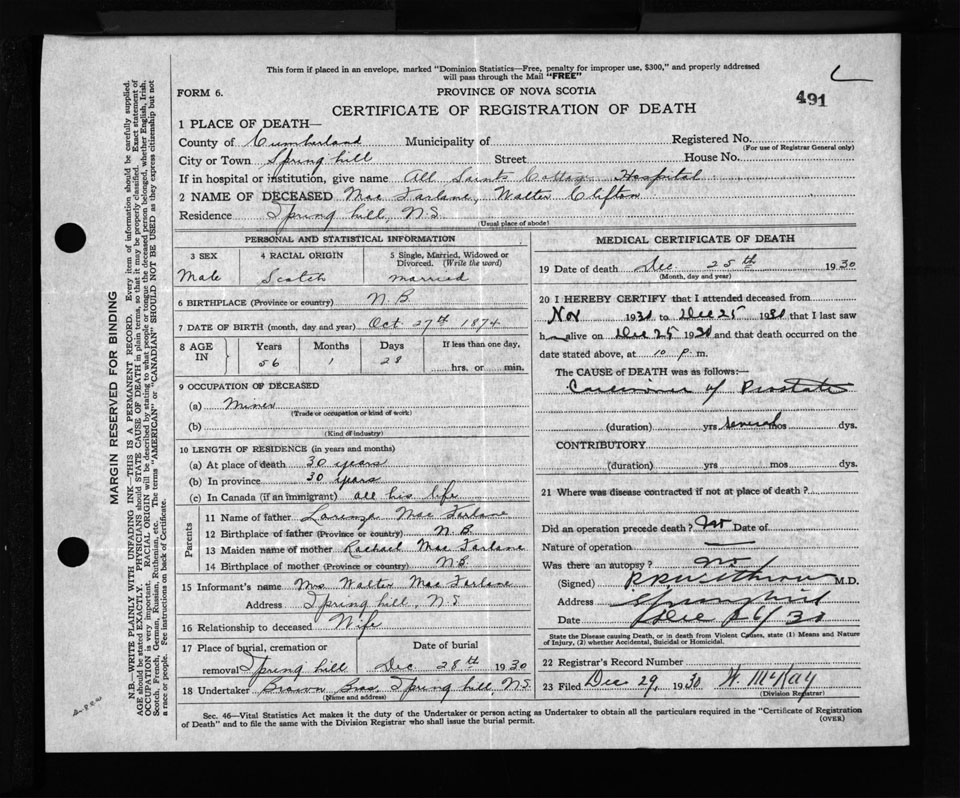 This form if placed in an envelope, marked "Dominion Statistics—Free, penalty for improper use, $300," and properly addressed
will pass through the Mail "FREE"
FORM 6.
PROVINCE OF NOVA SCOTIA
491
CERTIFICATE OF REGISTRATION OF DEATH
1 PLACE OF DEATH—
County of Cumberland Municipality of Registered No.
(For use of Registrar General only)
City or Town Spring hill Street House No.
If in hospital or institution, give name All Saints Cottage Hospital
2 NAME OF DECEASED Mac Farlane, Walter Clifton
Residence Spring hill, N.S.
(Usual place of abode)
PERSONAL AND STATISTICAL INFORMATION
3 SEX 4 RACIAL ORIGIN 5 Single, Married, Widowed or
Divorced. (Write the word)
Male Scotch married
6 BIRTHPLACE (Province or country) N.B.
7 DATE OF BIRTH (month, day and year) Oct 27th 1874
8 AGE IN Years Months Days If less than one day,
56 1 28 hrs. or min.
9 OCCUPATION OF DECEASED
(a) Miner
(Trade or occupation or kind of work)
(b)
(Kind of industry)
10 LENGTH OF RESIDENCE (in years and months)
(a) At place of death 30 years
(b) In province 30 years
(c) In Canada (if an immigrant) all his life
Parents
11 Name of father Lorenza Mac Farlane
12 Birthplace of father (Province or country) N.B.
13 Maiden name of mother Rachael Mac Farlane
14 Birthplace of mother (Province or country) N.B.
15 Informant's name Mrs Walter Mac Farlane
Address Spring hill, N.S.
16 Relationship to deceased Wife
17 Place of burial, cremation or Date of burial
removal Spring hill Dec 28th 1930
18 Undertaker Brown Bros, Spring hill, N.S.
(Name and address)
MEDICAL CERTIFICATE OF DEATH
19 Date of death Dec 25th 1930
(Month, day and year)
20 I HEREBY CERTIFY that I attended deceased from
Nov 1930 to Dec 25 1930 that I last saw
h alive on Dec 25 1930 and that death occurred on the
date stated above, at 10 p. m.
The CAUSE of DEATH was as follows:—
Carcinoma of Prostate
(duration) yrs several mos dys.
CONTRIBUTORY
(duration) yrs mos dys.
21 Where was disease contracted if not at place of death?
Did an operation precede death? No Date of
Nature of operation —
Was there an autopsy? No
(Signed) M.D.
Address Springhill
Date Dec 26/30
State the Disease causing Death, or in death from Violent Causes, state (1) Means and Nature
of Injury, (2) whether Accidental, Suicidal or Homicidal.
22 Registrar's Record Number
23 Filed Dec 29, 1930 W. McKay
(Division Registrar)
Sec. 46—Vital Statistics Act makes it the duty of the Undertaker or person acting as Undertaker to obtain all the particulars required in the "Certificate of Registration
of Death" and to file the same with the Division Registrar who shall issue the burial permit.
(OVER)
MARGIN RESERVED FOR BINDING
N.B.—WRITE PLAINLY WITH UNFADING INK—THIS IS A PERMANENT RECORD. Every item of information should be carefully supplied.
AGE should be stated EXACTLY. PHYSICIANS should STATE CAUSE OF DEATH in plain terms, so that it may be properly classified. Exact statement of
OCCUPATION is very important. RACIAL ORIGIN will be described by stating to what people or tongue the deceased person belonged, whether English, Irish,
Scotch, French, German, Russian, Ruthenian, etc. The terms "AMERICAN" or "CANADIAN" SHOULD NOT BE USED as they express citizenship but not
a race or people. See instructions on back of Certificate.